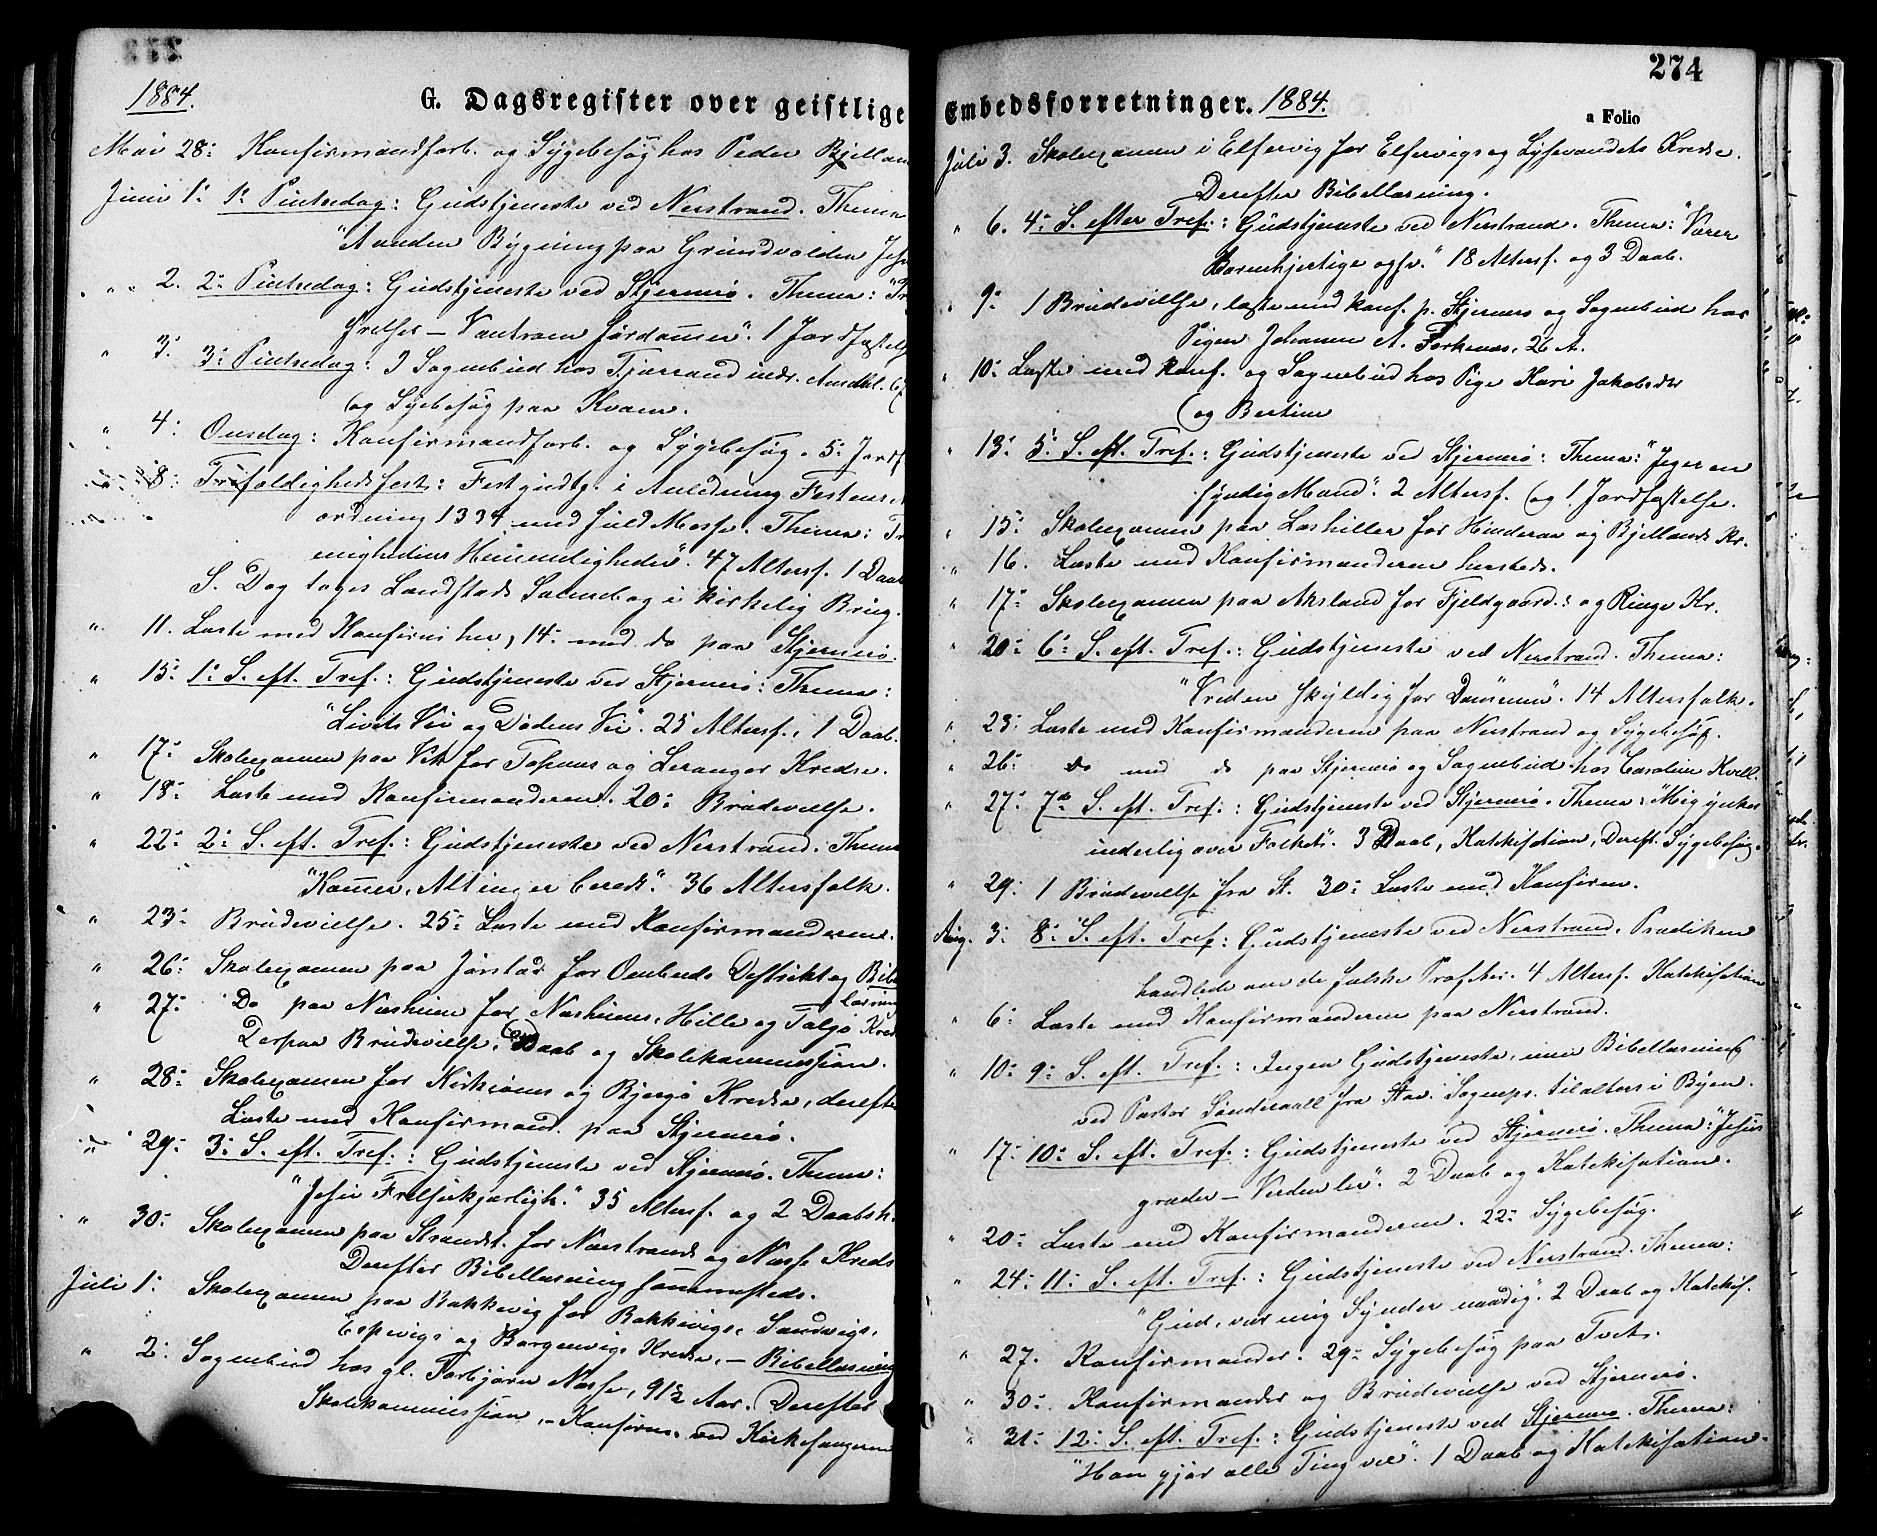 1884.
G. Dagsregister over geistlige
Mai 28: Konfirmandforb. og Sygebesøg hos Peder Bjellan
Juni 1: 1: Pintsedag: Gudstjeneste ved Nerstrand. Thema
"Aanden Bygning paa Grundvolden Jesu
" " 2. 2: Pintsedag: Gudstjeneste ved Stjernerø. Thema:
frelses – Vantroen fordømmer". 1 Jordfæstelse
" 3: 3: Pintsedag: Sognebud hos
og Sygebesøg paa Kvame.
" 4: Onsdag: Konfirmandforb. og Sygebesøg. 5: Jordf
8: Trefoldighedsfest: Festgudtj. i Anledning Festens
ordning 1334 med fuld Messe. Thema: Tr
enighedens Hemmeligheder". 47 Altersf. 1 Daab
S. Dag toges Landstads Salmebog i kirkelig Brug.
" 11. Læste med Konfirm her, 14: med do paa Stjernerø.
" 15: 1: S. eft. Tref.: Gudstjeneste ved Stjernerø: Thema:
"Livets Vei og Dødens Vei". 25 Altersf., 1 Daab.
" 17: Skoleexamen paa Vik for Tøsnes og Leranger Kredse.
" 18: Læste med Konfirmanderne. 20: Brudevielse.
" 22: 2: S. eft. Tref.: Gudstjeneste ved Nerstrand. Thema
"Kommer, Alting er beredt". 36 Altersfolk.
" 23: Brudevielse. 25: Læste med Konfirmanderne.
" 26: Skoleexamen paa Jørstad for Ombords Distrikt og Bibel
læsning
" 27: Do paa Næsheim for Næsheims, Hille og Talgø Kred
Derpaa Brudevielse, Daab og Skolekommission.
" 28: Skoleexamen for Kirkeøens og Bjergø Kredse, derefter
Læste med Konfirmand. paa Stjernerø.
" 29: 3: S. eft. Tref.: Gudstjeneste ved Stjernerø. Thema:
"Jesu Frelserkjærligh." 35 Altersf. og 2 Daabsh.
" 30: Skoleexamen paa Strandst. for Nærstrands og Næsse Kreds
Derefter Bibellæsning sammesteds.
Juli 1: Skoleexamen paa Bakkevig for Bakkevigs, Sandvigs,
Espevigs og Borgenvigs Kredse, – Bibellæsning
" 2: Sognebud hos gl. Torbjørn Næsse, 91½ Aar. Derefter
Skolekommission, – Konfirm. ved Kirkesangeren
274
Embedsforretninger. 1884.
a Folio
Juli 3. Skoleexamen i Elfervig for Elfervigs og Lysevandets Kredse.
Derefter Bibellæsning.
" 6. 4: S. efter Tref.: Gudstjeneste ved Nerstrand. Thema: "Værer
Barmhjertige og fv." 18 Altersf. og 3 Daab.
" 9: 1 Brudevielse, læste med konf. p. Stjernerø og Sognebud hos
Pigen Johanne A. Forkenes, 26 A.
" 10: Læste med konf. og Sognebud hos Pige Kari Jakobsdtr
(og Bertine
" 13: 5: S. eft. Tref.: Gudstjeneste ved Stjernerø: Thema: "Jeg er en
syndig Mand". 2 Altersf. og 1 Jordfæstelse.
" 15: Skoleexamen paa Læshiller for Hinderaa og Bjellands Kr.
" 16. Læste med Konfirmanderne hersteds.
" 17: Skoleexamen paa Aksland for Fjeldgaard: og Ringe Kr.
" 20: 6: S. eft. Tref.: Gudstjeneste ved Nerstrand. Thema:
"Vreden skyldig for Dommen". 14 Altersfolk.
" 23: Læste med Konfirmanderne paa Nerstrand og Sygebesøg.
" 26: do med do paa Stjernerø og Sognebud hos Caroline Kvell.
" 27: 7de S. eft. Tref.: Gudstjeneste ved Stjernerø. Thema: "Mig ynkes
inderlig over Folket". 3 Daab, Katekisation, Dereft. Sygebesøg.
" 29: 1 Brudevielse fra St. 30: Læste med Konfirm.
Aug. 3: 8: S. eft. Tref.: Gudstjeneste ved Nerstrand. Prædiken
handlede om de falske Profeter. 4 Altersf. Katekisation
" 6: Læste med Konfirmanderne paa Nerstrand.
" 10: 9: S. eft. Tref.: Ingen Gudstjeneste, men Bibellæsning
ved Pastor Sønderaall fra Stav. Sognepr. til alters i Byen.
" 17: 10: S. eft. Tref.: Gudstjeneste ved Stjernerø. Thema: "Jesus
græder – Verden ler". 2 Daab og Katekisation.
" 20: Læste med Konfirmanderne. 22: Sygebesøg.
" 24: 11: S. eft. Tref.: Gudstjeneste ved Nerstrand. Thema:
"Gud, vær mig Synder naadig". 2 Daab og Katekis.
" 27. Konfirmander. 29: Sygebesøg paa Tveit.
" 30: Konfirmander og Brudevielse ved Stjernerø.
" 31: 12: S. eft. Tref.: Gudstjeneste ved Stjernerø. Thema:
"Han gjør alle Ting vel". 1 Daab og Katekisation.